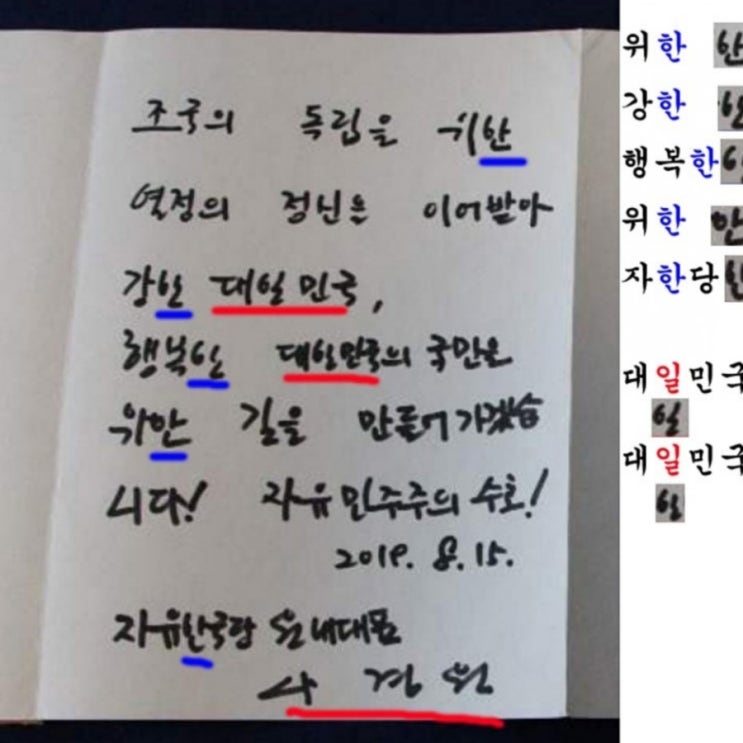 조국의 독립을 위한
열정의 정신을 이어받아
강한 대일민국,
행복한 대일민국의 국민을
위한 길을 만들어 가겠습
니다! 자유민주주의 수호!
2019. 8. 15.
자유한국당 원내대표
나 경 원
위한 한
강한 한
행복한
위한 한
자한당 한
대일민국
일
대일민국
일